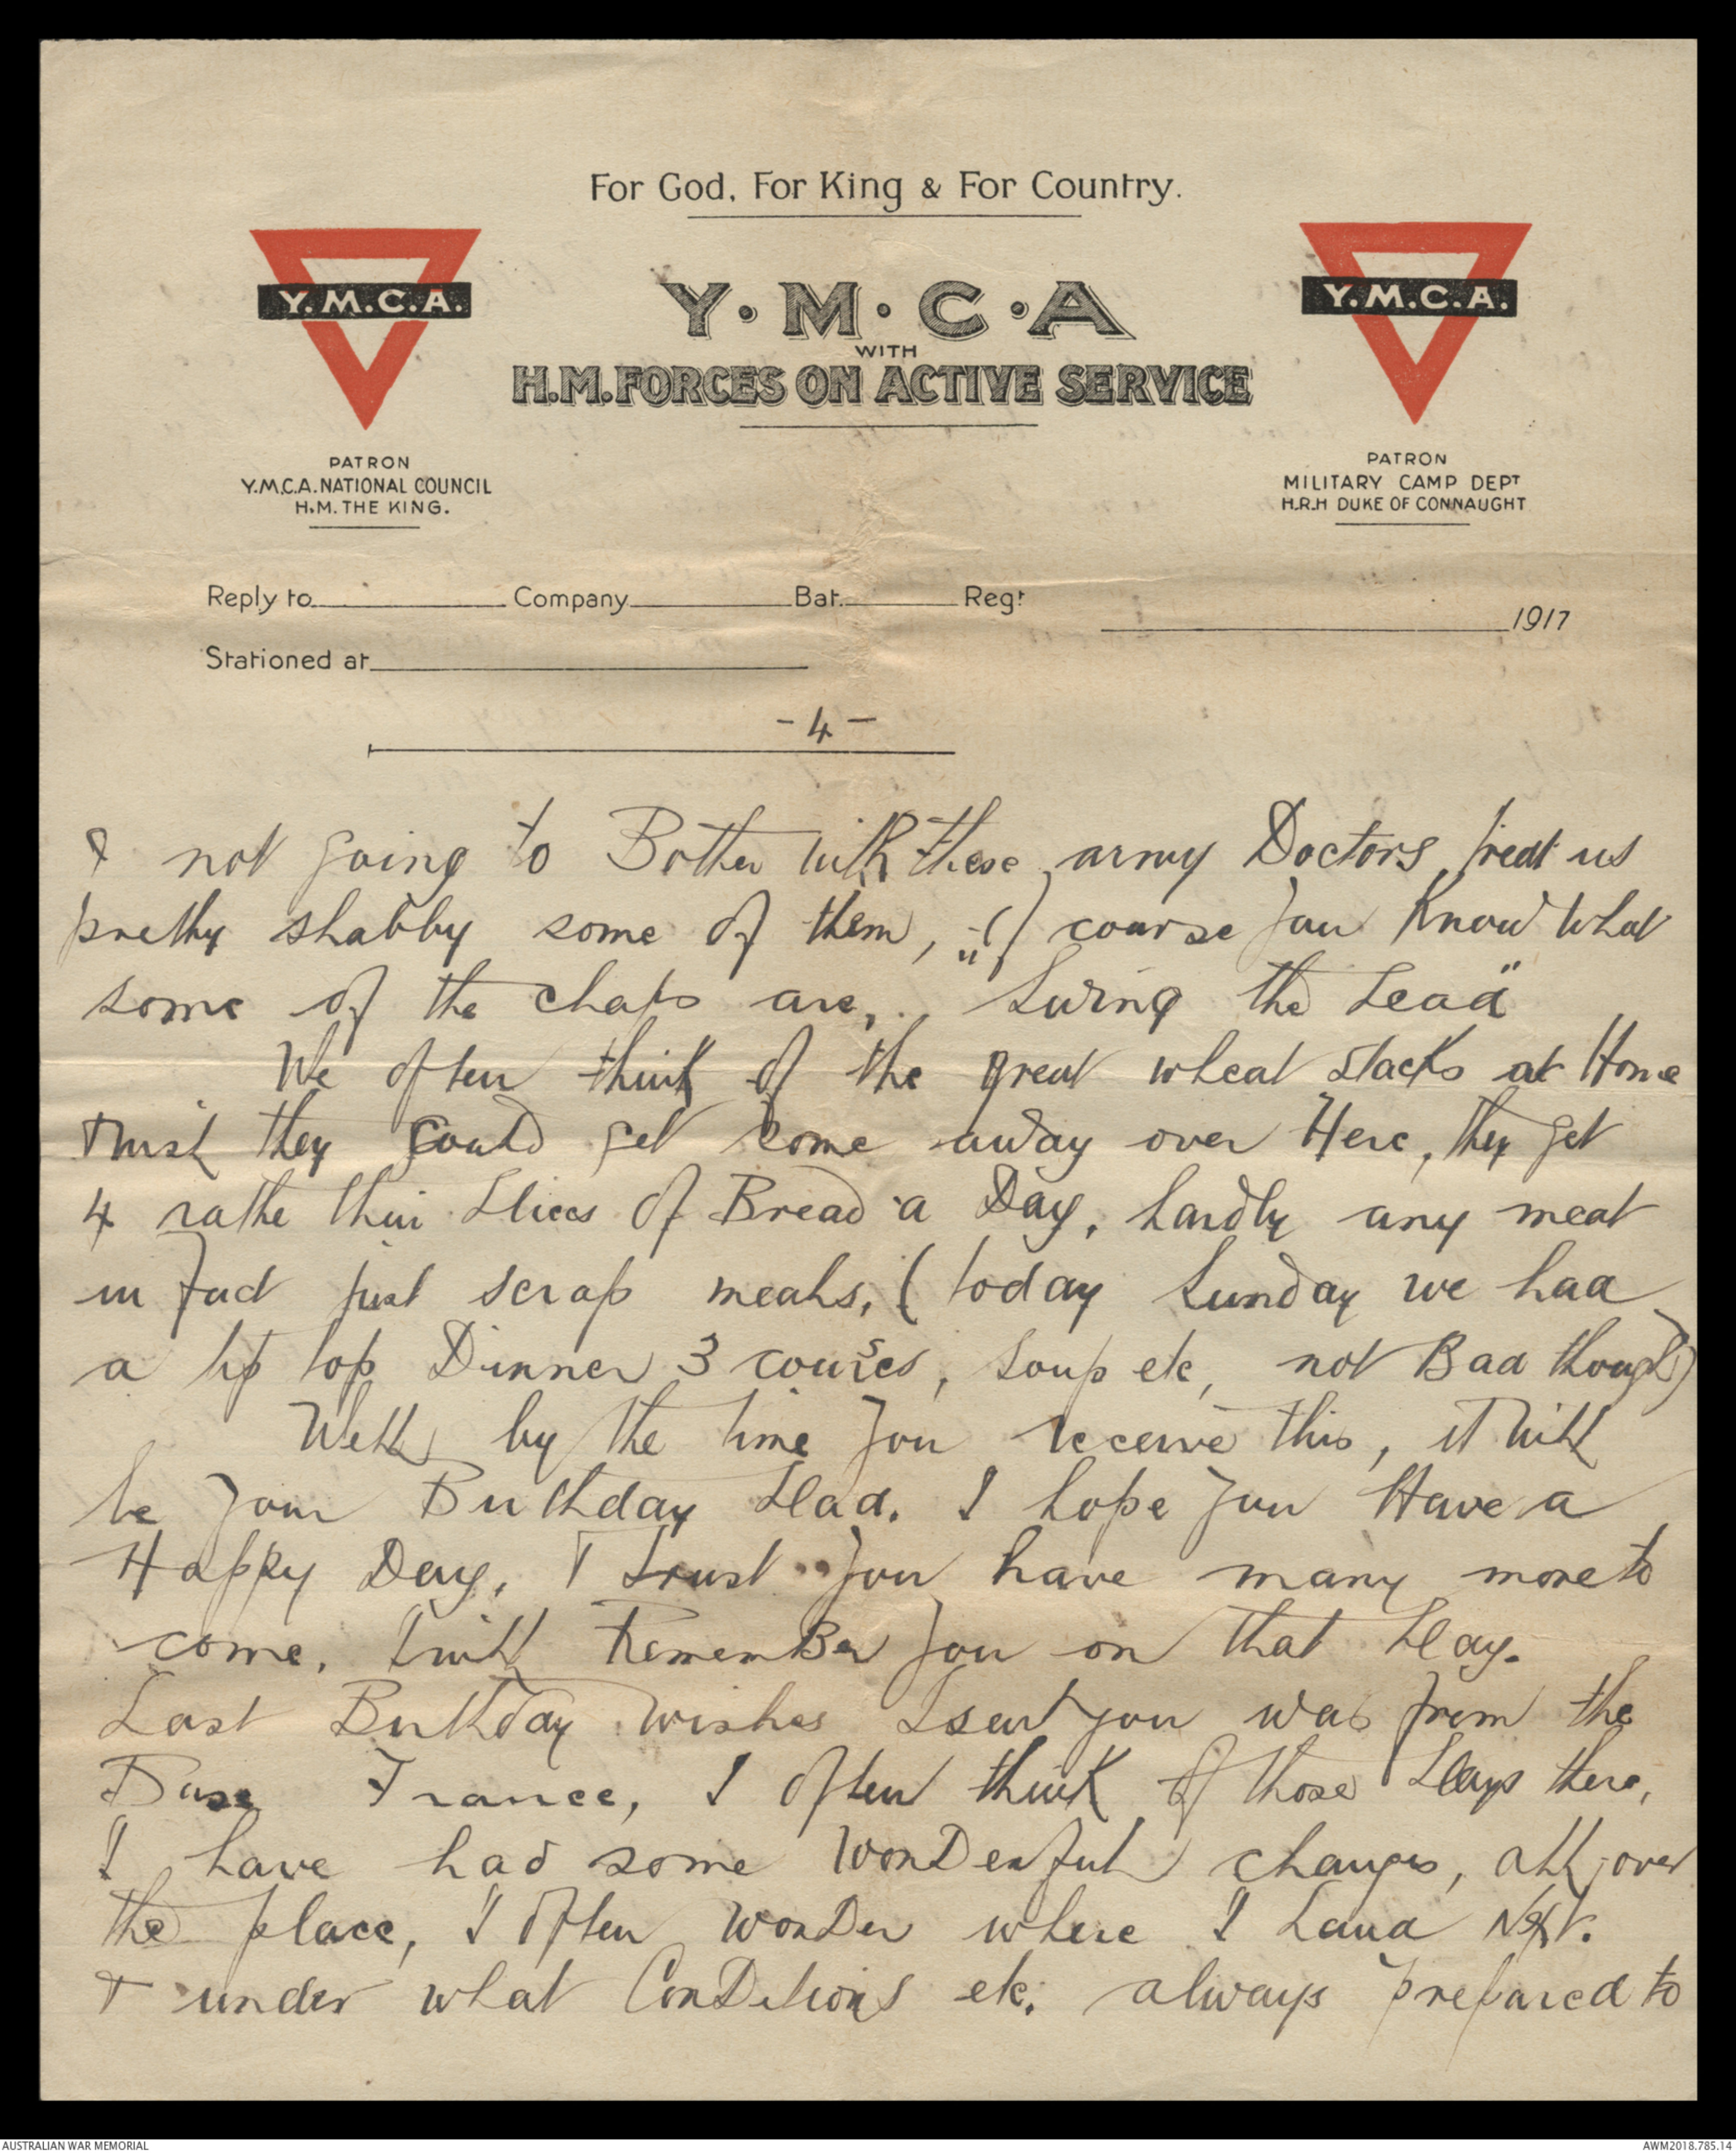 For God, For King & For Country.
Y.M.C.A.
Y.M.C.A
WITH
H.M. FORCES ON ACTIVE SERVICE
Y.M.C.A.
PATRON
Y.M.C.A. NATIONAL COUNCIL
H.M. THE KING.
PATRON
MILITARY CAMP DEPT
H.R.H DUKE OF CONNAUGHT
Reply to Company Bat. Regt
1917
Stationed at
- 4 -
& not going to Bother with these army Doctors treat us
pretty shabby some of them, of course you Know what
some of the chaps are, Swing the Lead"
We often think of the great wheat stacks at Home
they could get some away over Here, they get
4 rathe thin Slices of Bread a Day, hardly any meat
in fact just scrap meals, (today Sunday we had
a tip top Dinner 3 courses, soup etc, not Bad though)
Well by the time you receive this, it will
be your Birthday Dad. I hope you Have a
Happy Day, I trust you have many more to
come. I will Remember you on that Day.
Last Birthday wishes I sent you was from the
Base France, I often think of those Days there,
I have had some wonderful changes, all over
the place, I often wonder where I Land Next.
& under what Conditions etc. always prepared to
AUSTRALIAN WAR MEMORIAL
AWM2018.785.14